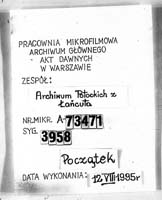 PRACOWNIA MIKROFILMOWA
ARCHIWUM GŁÓWNEGO
AKT DAWNYCH
W WARSZAWIE
ZESPÓŁ:
Archiwum Potockich z
Łańcuta
NR.MIKR. A-73471
SYG. 3958
Początek
DATA WYKONANIA: 12 VIII 1995r